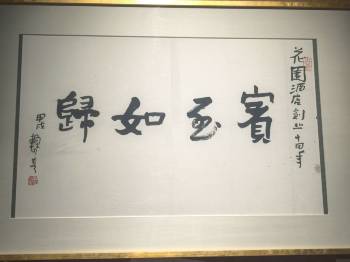 花園酒店創业十周年
賓至如歸
甲戌